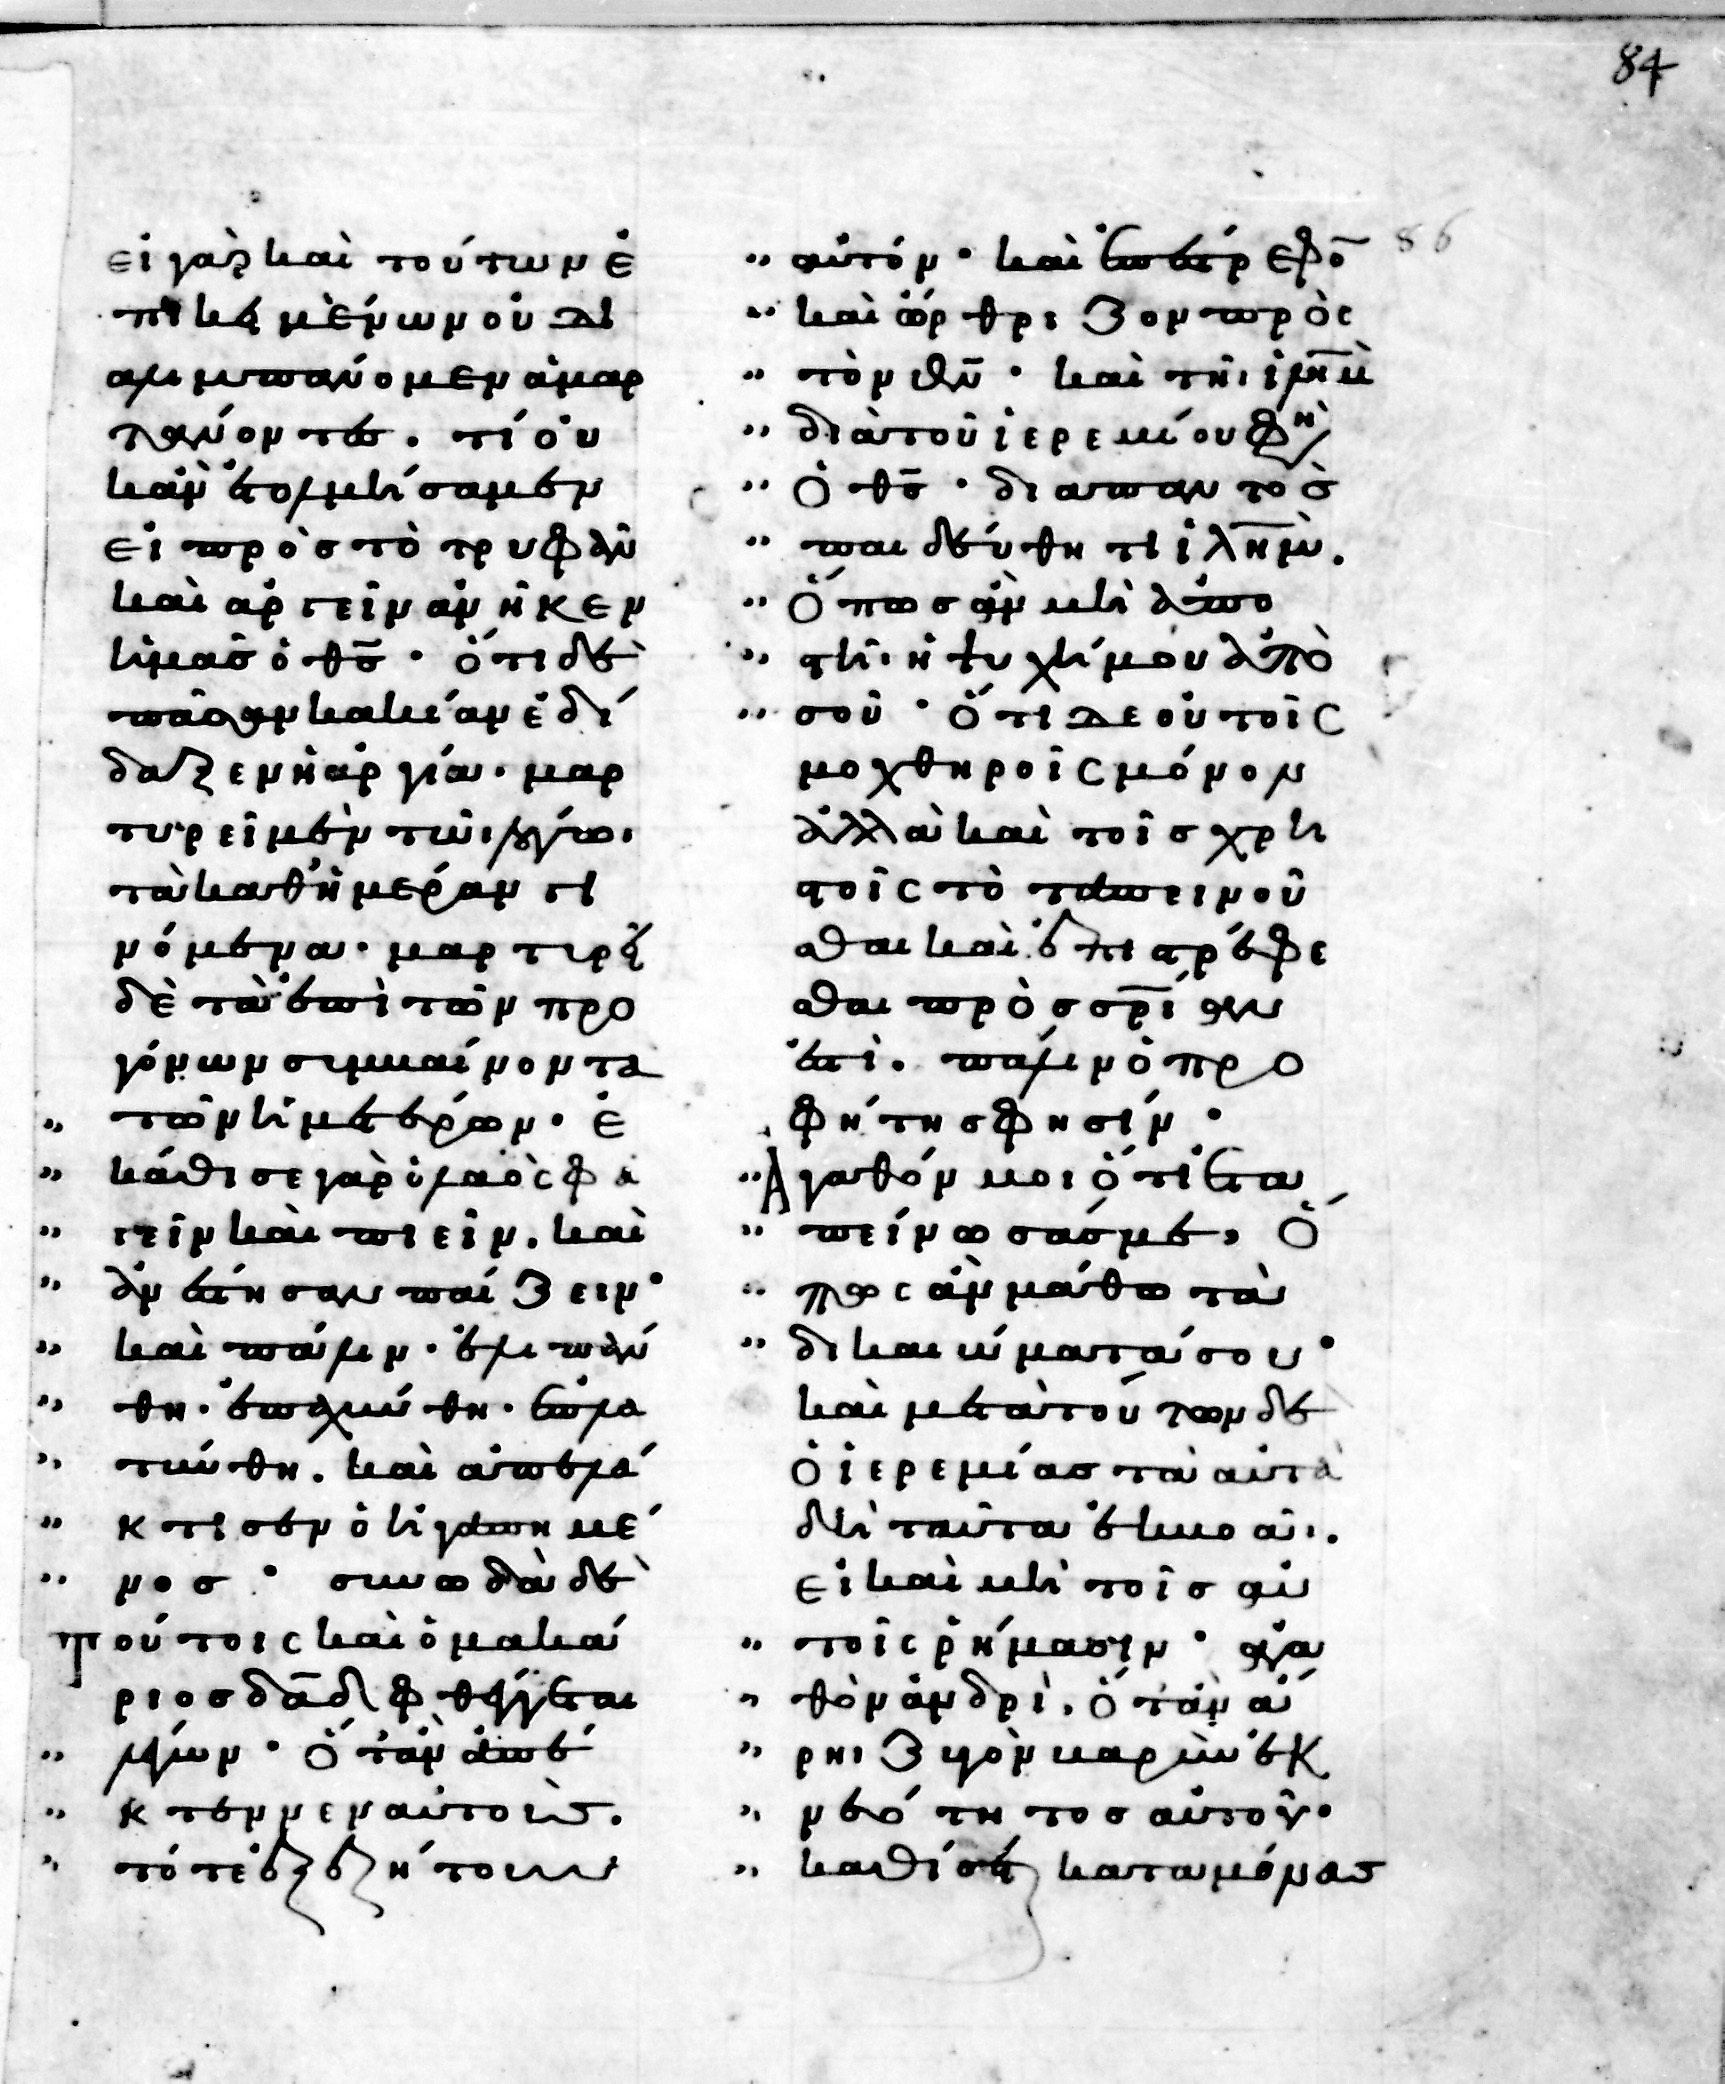 84
86
εἰ γὰρ καὶ τούτων ἐ
πικειμένων οὐ δι
αλιμπάνομεν ἁμαρ
τάνοντες. τί οὐ
κἂν ἐτολμήσαμεν
εἰ πρὸς τὸ τρυφᾶν
καὶ ἀργεῖν ἀνῆκεν
ἡμᾶς ὁ θ̅ς̅· ὅτι δὲ
πᾶσαν κακίαν ἐδί
δαξεν ἡ ἀργία· μαρ
τυρεῖ μὲν τῶι λόγωι
τὰ καθ' ἡμέραν γι
νόμενα· μαρτυρεῖ
δὲ τὰ ἐπὶ τῶν προ
γόνων συμβαίνοντα
τῶν ἡμετέρων· ἐ
κάθισε γὰρ ὁ λαὸς φα
γεῖν καὶ πιεῖν. καὶ
ἀνέστησαν παίζειν·
καὶ πάλιν· ἐλιπάν
θη· ἐπαχύνθη· ἐπλα
τύνθη. καὶ ἀπελά
κτισεν ὁ ἠγαπημέ
νος· συνωδὰ δὲ
τούτοις καὶ ὁ μακά
ριος δα̅δ̅ φθέγγεται
λέγων· ὅταν ἀπέ
κτεννεν αὐτοὺς.
τότε ἐξεζήτουν
αὐτόν· καὶ ἐπέστρεφο̅
καὶ ὤρθριζον πρὸς
τὸν θ̅ν̅· καὶ τῆι ἱλ̅η̅μ̅
διὰ τοῦ ἱερεμίου φη
ὁ θ̅ς̅· διαπαντὸς
παιδεύθητι ἱλ̅η̅μ̅.
ὅπως ἂν μὴ ἀπο
στῆι ἡ ψυχή μου ἀπὸ
σοῦ· ὅτι δὲ οὐ τοῖς
μοχθηροῖς μόνον
ἀλλὰ καὶ τοῖς χρη
στοῖς τὸ ταπεινοῦ
σθαι καὶ ἐπιστρέφε
σθαι πρὸς σ̅ρ̅ίαν
ἐστὶ. πάλιν ὁ προ
φήτης φησίν·
Ἀγαθόν μοι ὅτι ἐτα
πείνωσάς με, ὅ
πως ἂν μάθω τὰ
δικαιώματά σου·
καὶ μετὰ τούτων δὲ
ὁ ἱερεμίας τὰ αὐτὰ
δὴ ταῦτα ἐβόα.
εἰ καὶ μὴ τοῖς αὐ
τοῖς ῥήμασιν· ἀγα
θὸν ἀνδρὶ. ὅταν αἴ
ρηι ζυγὸν βαρὺν ἐκ
νεότητος αὐτοῦ·
καθίσεται καταμόνας